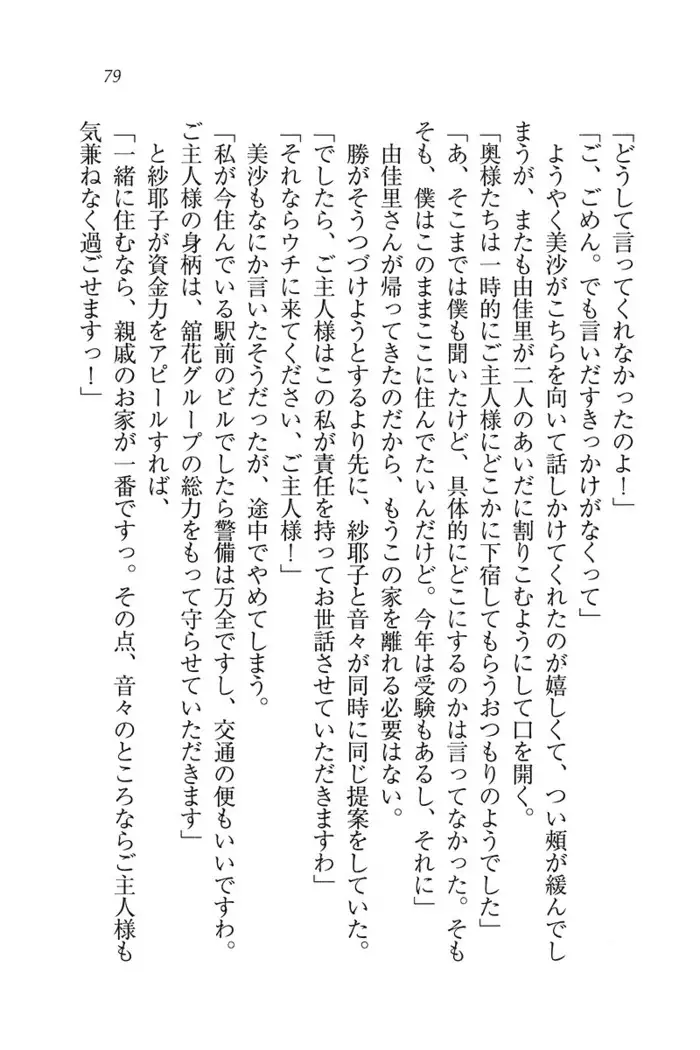 79
「どうして言ってくれなかったのよ！」
「ご、ごめん。でも言いだすきっかけがなくって」
ようやく美沙がこちらを向いて話しかけてくれたのが嬉しくて、つい頰が緩んでし
まうが、またも由佳里が二人のあいだに割りこむようにして口を開く。
「奥様たちは一時的にご主人様にどこかに下宿してもらうおつもりのようでした」
「あ、そこまでは僕も聞いたけど、具体的にどこにするのかは言ってなかった。そも
そも、僕はこのままここに住んでたいんだけど。今年は受験もあるし、それに」
由佳里さんが帰ってきたのだから、もうこの家を離れる必要はない。
勝がそうつづけようとするより先に、紗耶子と音々が同時に同じ提案をしていた。
「でしたら、ご主人様はこの私が責任を持ってお世話させていただきますわ」
「それならウチに来てください、ご主人様！」
美沙もなにか言いたそうだったが、途中でやめてしまう。
「私が今住んでいる駅前のビルでしたら警備は万全ですし、交通の便もいいですわ。
ご主人様の身柄は、舘花グループの総力をもって守らせていただきます」
と紗耶子が資金力をアピールすれば、
「一緒に住むなら、親戚のお家が一番ですっ。その点、音々のところならご主人様も
気兼ねなく過ごせますっ！」